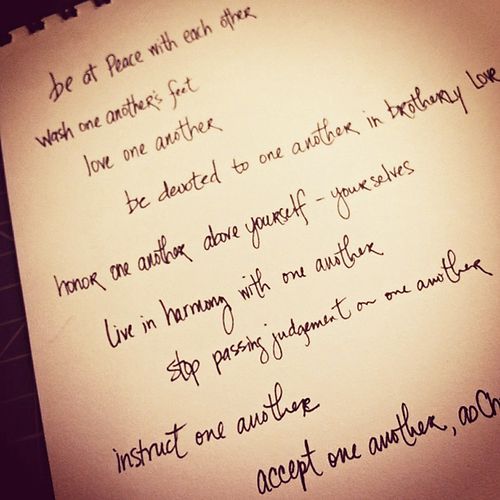 be at Peace with each other
wash one another's feet
love one another
be devoted to one another in brotherly Love
honor one another above yourself - yourselves
Live in harmony with one another
Stop passing judgement on one another
instruct one another
accept one another, as Ch